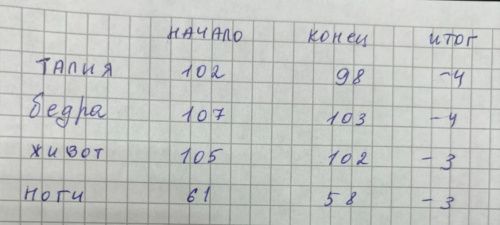 НАЧАЛО КОНЕЦ ИТОГ
ТАЛИЯ 102 98 -4
бедра 107 103 -4
ЖИВОТ 105 102 -3
НОГИ 61 58 -3